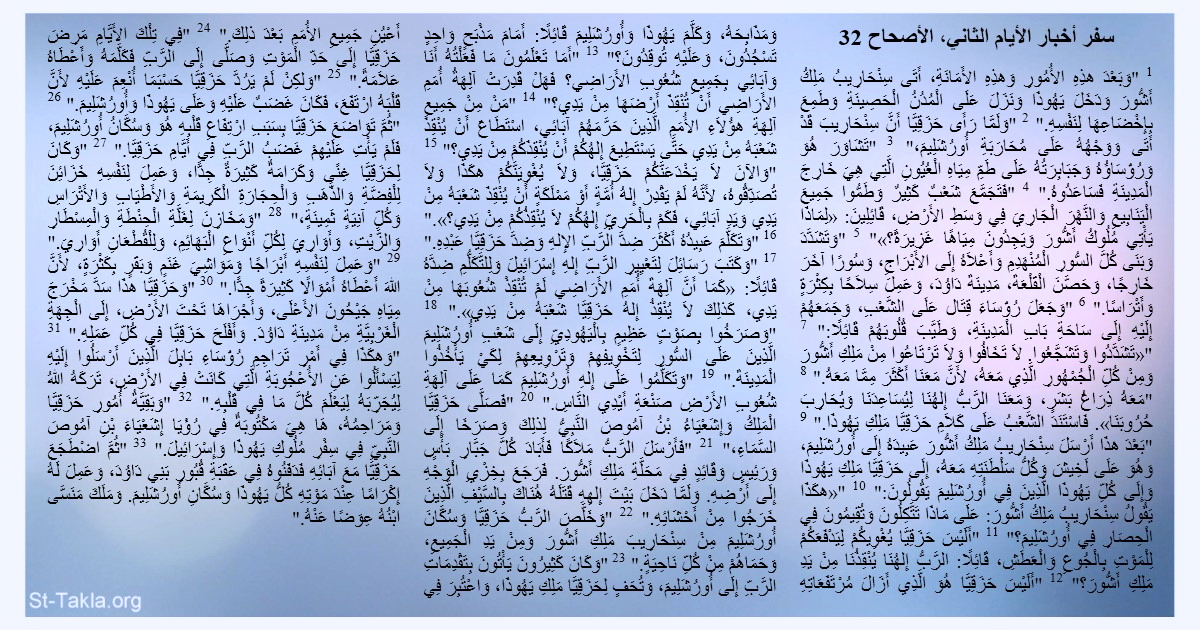 سفر أخبار الأيام الثاني، الأصحاح 32
1 "وَبَعْدَ هذِهِ الأُمُورِ وَهذِهِ الأَمَانَةِ، أَتَى سِنْحَارِيبُ مَلِكُ
أَشُّورَ وَدَخَلَ يَهُوذَا وَنَزَلَ عَلَى الْمُدُنِ الْحَصِينَةِ وَطَمِعَ
بِإِخْضَاعِهَا لِنَفْسِهِ." 2 "وَلَمَّا رَأَى حَزَقِيَّا أَنَّ سِنْحَارِيبَ قَدْ
أَتَى وَوَجْهُهُ عَلَى مُحَارَبَةِ أُورُشَلِيمَ،" 3 "تَشَاوَرَ هُوَ
وَرُؤَسَاؤُهُ وَجَبَابِرَتُهُ عَلَى طَمِّ مِيَاهِ الْعُيُونِ الَّتِي هِيَ خَارِجَ
الْمَدِينَةِ فَسَاعَدُوهُ." 4 "فَتَجَمَّعَ شَعْبٌ كَثِيرٌ وَطَمُّوا جَمِيعَ
الْيَنَابِيعِ وَالنَّهْرَ الْجَارِيَ فِي وَسَطِ الأَرْضِ، قَائِلِينَ: «لِمَاذَا
يَأْتِي مُلُوكُ أَشُّورَ وَيَجِدُونَ مِيَاهًا غَزِيرَةً؟»" 5 "وَتَشَدَّدَ
وَبَنَى كُلَّ السُّورِ الْمُنْهَدِمِ وَأَعْلاَهُ إِلَى الأَبْرَاجِ، وَسُورًا آخَرَ
خَارِجًا، وَحَصَّنَ الْقَلْعَةَ، مَدِينَةَ دَاوُدَ، وَعَمِلَ سِلاَحًا بِكِثْرَةٍ
وَأَتْرَاسًا." 6 "وَجَعَلَ رُؤَسَاءَ قِتَال عَلَى الشَّعْبِ، وَجَمَعَهُمْ
إِلَيْهِ إِلَى سَاحَةِ بَابِ الْمَدِينَةِ، وَطَيَّبَ قُلُوبَهُمْ قَائِلًا:" 7
"«تَشَدَّدُوا وَتَشَجَّعُوا. لاَ تَخَافُوا وَلاَ تَرْتَاعُوا مِنْ مَلِكِ أَشُّورَ
وَمِنْ كُلِّ الْجُمْهُورِ الَّذِي مَعَهُ، لأَنَّ مَعَنَا أَكْثَرَ مِمَّا مَعَهُ." 8
"مَعَهُ ذِرَاعُ بَشَرٍ، وَمَعَنَا الرَّبُّ إِلهُنَا لِيُسَاعِدَنَا وَيُحَارِبَ
حُرُوبَنَا». فَاسْتَنَدَ الشَّعْبُ عَلَى كَلاَمِ حَزَقِيَّا مَلِكِ يَهُوذَا." 9
"بَعْدَ هذَا أَرْسَلَ سِنْحَارِيبُ مَلِكُ أَشُّورَ عَبِيدَهُ إِلَى أُورُشَلِيمَ،
وَهُوَ عَلَى لَخِيشَ وَكُلُّ سَلْطَنَتِهِ مَعَهُ، إِلَى حَزَقِيَّا مَلِكِ يَهُوذَا
وَإِلَى كُلِّ يَهُوذَا الَّذِينَ فِي أُورُشَلِيمَ يَقُولُونَ:" 10 "«هكَذَا
يَقُولُ سِنْحَارِيبُ مَلِكُ أَشُّورَ: عَلَى مَاذَا تَتَّكِلُونَ وَتُقِيمُونَ فِي
الْحِصَارِ فِي أُورُشَلِيمَ؟" 11 "أَلَيْسَ حَزَقِيَّا يُغْوِيكُمْ لِيَدْفَعَكُمْ
لِلْمَوْتِ بِالْجُوعِ وَالْعَطَشِ، قَائِلًا: الرَّبُّ إِلهُنَا يُنْقِذُنَا مِنْ يَدِ
مَلِكِ أَشُّورَ؟" 12 "أَلَيْسَ حَزَقِيَّا هُوَ الَّذِي أَزَالَ مُرْتَفَعَاتِهِ
وَمَذَابِحَهُ، وَكَلَّمَ يَهُوذَا وَأُورُشَلِيمَ قَائِلًا: أَمَامَ مَذْبَحٍ وَاحِدٍ
تَسْجُدُونَ، وَعَلَيْهِ تُوقِدُونَ؟" 13 "أَمَا تَعْلَمُونَ مَا فَعَلْتُهُ أَنَا
وَآبَائِي بِجَمِيعِ شُعُوبِ الأَرَاضِي؟ فَهَلْ قَدِرَتْ آلِهَةُ أُمَمِ
الأَرَاضِي أَنْ تُنْقِذَ أَرْضَهَا مِنْ يَدِي؟" 14 "مَنْ مِنْ جَمِيعِ
آلِهَةِ هؤُلاَءِ الأُمَمِ الَّذِينَ حَرَّمَهُمْ آبَائِي، اسْتَطَاعَ أَنْ يُنْقِذَ
شَعْبَهُ مِنْ يَدِي حَتَّى يَسْتَطِيعَ إِلهُكُمْ أَنْ يُنْقِذَكُمْ مِنْ يَدِي؟" 15
"وَالآنَ لاَ يَخْدَعَنَّكُمْ حَزَقِيَّا، وَلاَ يُغْوِيَنَّكُمْ هكَذَا وَلاَ
تُصَدِّقُوهُ، لأَنَّهُ لَمْ يَقْدِرْ إِلهُ أُمَّةٍ أَوْ مَمْلَكَةٍ أَنْ يُنْقِذَ شَعْبَهُ مِنْ
يَدِي وَيَدِ آبَائِي، فَكَمْ بِالْحَرِيِّ إِلهُكُمْ لاَ يُنْقِذُكُمْ مِنْ يَدِي؟»."
16 "وَتَكَلَّمَ عَبِيدُهُ أَكْثَرَ ضِدَّ الرَّبِّ الإِلهِ وَضِدَّ حَزَقِيَّا عَبْدِهِ."
17 "وَكَتَبَ رَسَائِلَ لِتَعْيِيرِ الرَّبِّ إِلهِ إِسْرَائِيلَ وَلِلتَّكَلُّمِ ضِدَّهُ
قَائِلًا: «كَمَا أَنَّ آلِهَةَ أُمَمِ الأَرَاضِي لَمْ تُنْقِذْ شُعُوبَهَا مِنْ
يَدِي، كَذلِكَ لاَ يُنْقِذُ إِلهُ حَزَقِيَّا شَعْبَهُ مِنْ يَدِي»." 18
"وَصَرَخُوا بِصَوْتٍ عَظِيمٍ بِالْيَهُودِيِّ إِلَى شَعْبِ أُورُشَلِيمَ
الَّذِينَ عَلَى السُّورِ لِتَخْوِيفِهِمْ وَتَرْوِيعِهِمْ لِكَيْ يَأْخُذُوا
الْمَدِينَةَ." 19 "وَتَكَلَّمُوا عَلَى إِلهِ أُورُشَلِيمَ كَمَا عَلَى آلِهَةِ
شُعُوبِ الأَرْضِ صَنْعَةِ أَيْدِي النَّاسِ." 20 "فَصَلَّى حَزَقِيَّا
الْمَلِكُ وَإِشَعْيَاءُ بْنُ آمُوصَ النَّبِيُّ لِذلِكَ وَصَرَخَا إِلَى
السَّمَاءِ،" 21 "فَأَرْسَلَ الرَّبُّ مَلاَكًا فَأَبَادَ كُلَّ جَبَّارِ بَأْسٍ
وَرَئِيسٍ وَقَائِدٍ فِي مَحَلَّةِ مَلِكِ أَشُّورَ. فَرَجَعَ بِخِزْيِ الْوَجْهِ
إِلَى أَرْضِهِ. وَلَمَّا دَخَلَ بَيْتَ إِلهِهِ قَتَلَهُ هُنَاكَ بِالسَّيْفِ الَّذِينَ
خَرَجُوا مِنْ أَحْشَائِهِ." 22 "وَخَلَّصَ الرَّبُّ حَزَقِيَّا وَسُكَّانَ
أُورُشَلِيمَ مِنْ سِنْحَارِيبَ مَلِكِ أَشُّورَ وَمِنْ يَدِ الْجَمِيعِ،
وَحَمَاهُمْ مِنْ كُلِّ نَاحِيَةٍ." 23 "وَكَانَ كَثِيرُونَ يَأْتُونَ بِتَقْدِمَاتِ
الرَّبِّ إِلَى أُورُشَلِيمَ، وَتُحَفٍ لِحَزَقِيَّا مَلِكِ يَهُوذَا، وَاعْتُبِرَ فِي
أَعْيُنِ جَمِيعِ الأُمَمِ بَعْدَ ذلِكَ." 24 "فِي تِلْكَ الأَيَّامِ مَرِضَ
حَزَقِيَّا إِلَى حَدِّ الْمَوْتِ وَصَلَّى إِلَى الرَّبِّ فَكَلَّمَهُ وَأَعْطَاهُ
عَلاَمَةً." 25 "وَلكِنْ لَمْ يَرُدَّ حَزَقِيَّا حَسْبَمَا أُنْعِمَ عَلَيْهِ لأَنَّ
قَلْبَهُ ارْتَفَعَ، فَكَانَ غَضَبٌ عَلَيْهِ وَعَلَى يَهُوذَا وَأُورُشَلِيمَ." 26
"ثُمَّ تَوَاضَعَ حَزَقِيَّا بِسَبَبِ ارْتِفَاعِ قَلْبِهِ هُوَ وَسُكَّانُ أُورُشَلِيمَ،
فَلَمْ يَأْتِ عَلَيْهِمْ غَضَبُ الرَّبِّ فِي أَيَّامِ حَزَقِيَّا." 27 "وَكَانَ
لِحَزَقِيَّا غِنًى وَكَرَامَةٌ كَثِيرَةٌ جِدًّا، وَعَمِلَ لِنَفْسِهِ خَزَائِنَ
لِلْفِضَّةِ وَالذَّهَبِ وَالْحِجَارَةِ الْكَرِيمَةِ وَالأَطْيَابِ وَالأَتْرَاسِ
وَكُلِّ آنِيَةٍ ثَمِينَةٍ،" 28 "وَمَخَازِنَ لِغَلَّةِ الْحِنْطَةِ وَالْمِسْطَارِ
وَالزَّيْتِ، وَأَوَارِيَ لِكُلِّ أَنْوَاعِ الْبَهَائِمِ، وَلِلْقُطْعَانِ أَوَارِيَ."
29 "وَعَمِلَ لِنَفْسِهِ أَبْرَاجًا وَمَوَاشِيَ غَنَمٍ وَبَقَرٍ بِكَثْرَةٍ، لأَنَّ
اللهَ أَعْطَاهُ أَمْوَالًا كَثِيرَةً جِدًّا." 30 "وَحَزَقِيَّا هذَا سَدَّ مَخْرَجَ
مِيَاهِ جَيْحُونَ الأَعْلَى، وَأَجْرَاهَا تَحْتَ الأَرْضِ، إِلَى الْجِهَةِ
الْغَرْبِيَّةِ مِنْ مَدِينَةِ دَاوُدَ. وَأَفْلَحَ حَزَقِيَّا فِي كُلِّ عَمَلِهِ." 31
"وَهكَذَا فِي أَمْرِ تَرَاجِمِ رُؤَسَاءِ بَابِلَ الَّذِينَ أَرْسَلُوا إِلَيْهِ
لِيَسْأَلُوا عَنِ الأُعْجُوبَةِ الَّتِي كَانَتْ فِي الأَرْضِ، تَرَكَهُ اللهُ
لِيُجَرِّبَهُ لِيَعْلَمَ كُلَّ مَا فِي قَلْبِهِ." 32 "وَبَقِيَّةُ أُمُورِ حَزَقِيَّا
وَمَرَاحِمُهُ، هَا هِيَ مَكْتُوبَةٌ فِي رُؤْيَا إِشَعْيَاءَ بْنِ آمُوصَ
النَّبِيِّ فِي سِفْرِ مُلُوكِ يَهُوذَا وَإِسْرَائِيلَ." 33 "ثُمَّ اضْطَجَعَ
حَزَقِيَّا مَعَ آبَائِهِ فَدَفَنُوهُ فِي عَقَبَةِ قُبُورِ بَنِي دَاوُدَ، وَعَمِلَ لَهُ
إِكْرَامًا عِنْدَ مَوْتِهِ كُلُّ يَهُوذَا وَسُكَّانِ أُورُشَلِيمَ. وَمَلَكَ مَنَسَّى
ابْنُهُ عِوَضًا عَنْهُ."
St-Takla.org